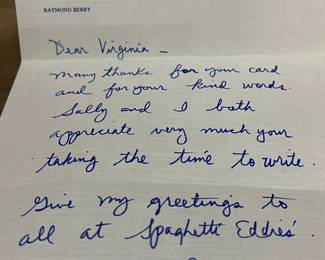 RAYMOND BERRY
Dear Virginia -
Many thanks for your card
and for your kind words.
Sally and I both
appreciate very much your
taking the time to write.
Give my greetings to
all at Spaghetti Eddies'.